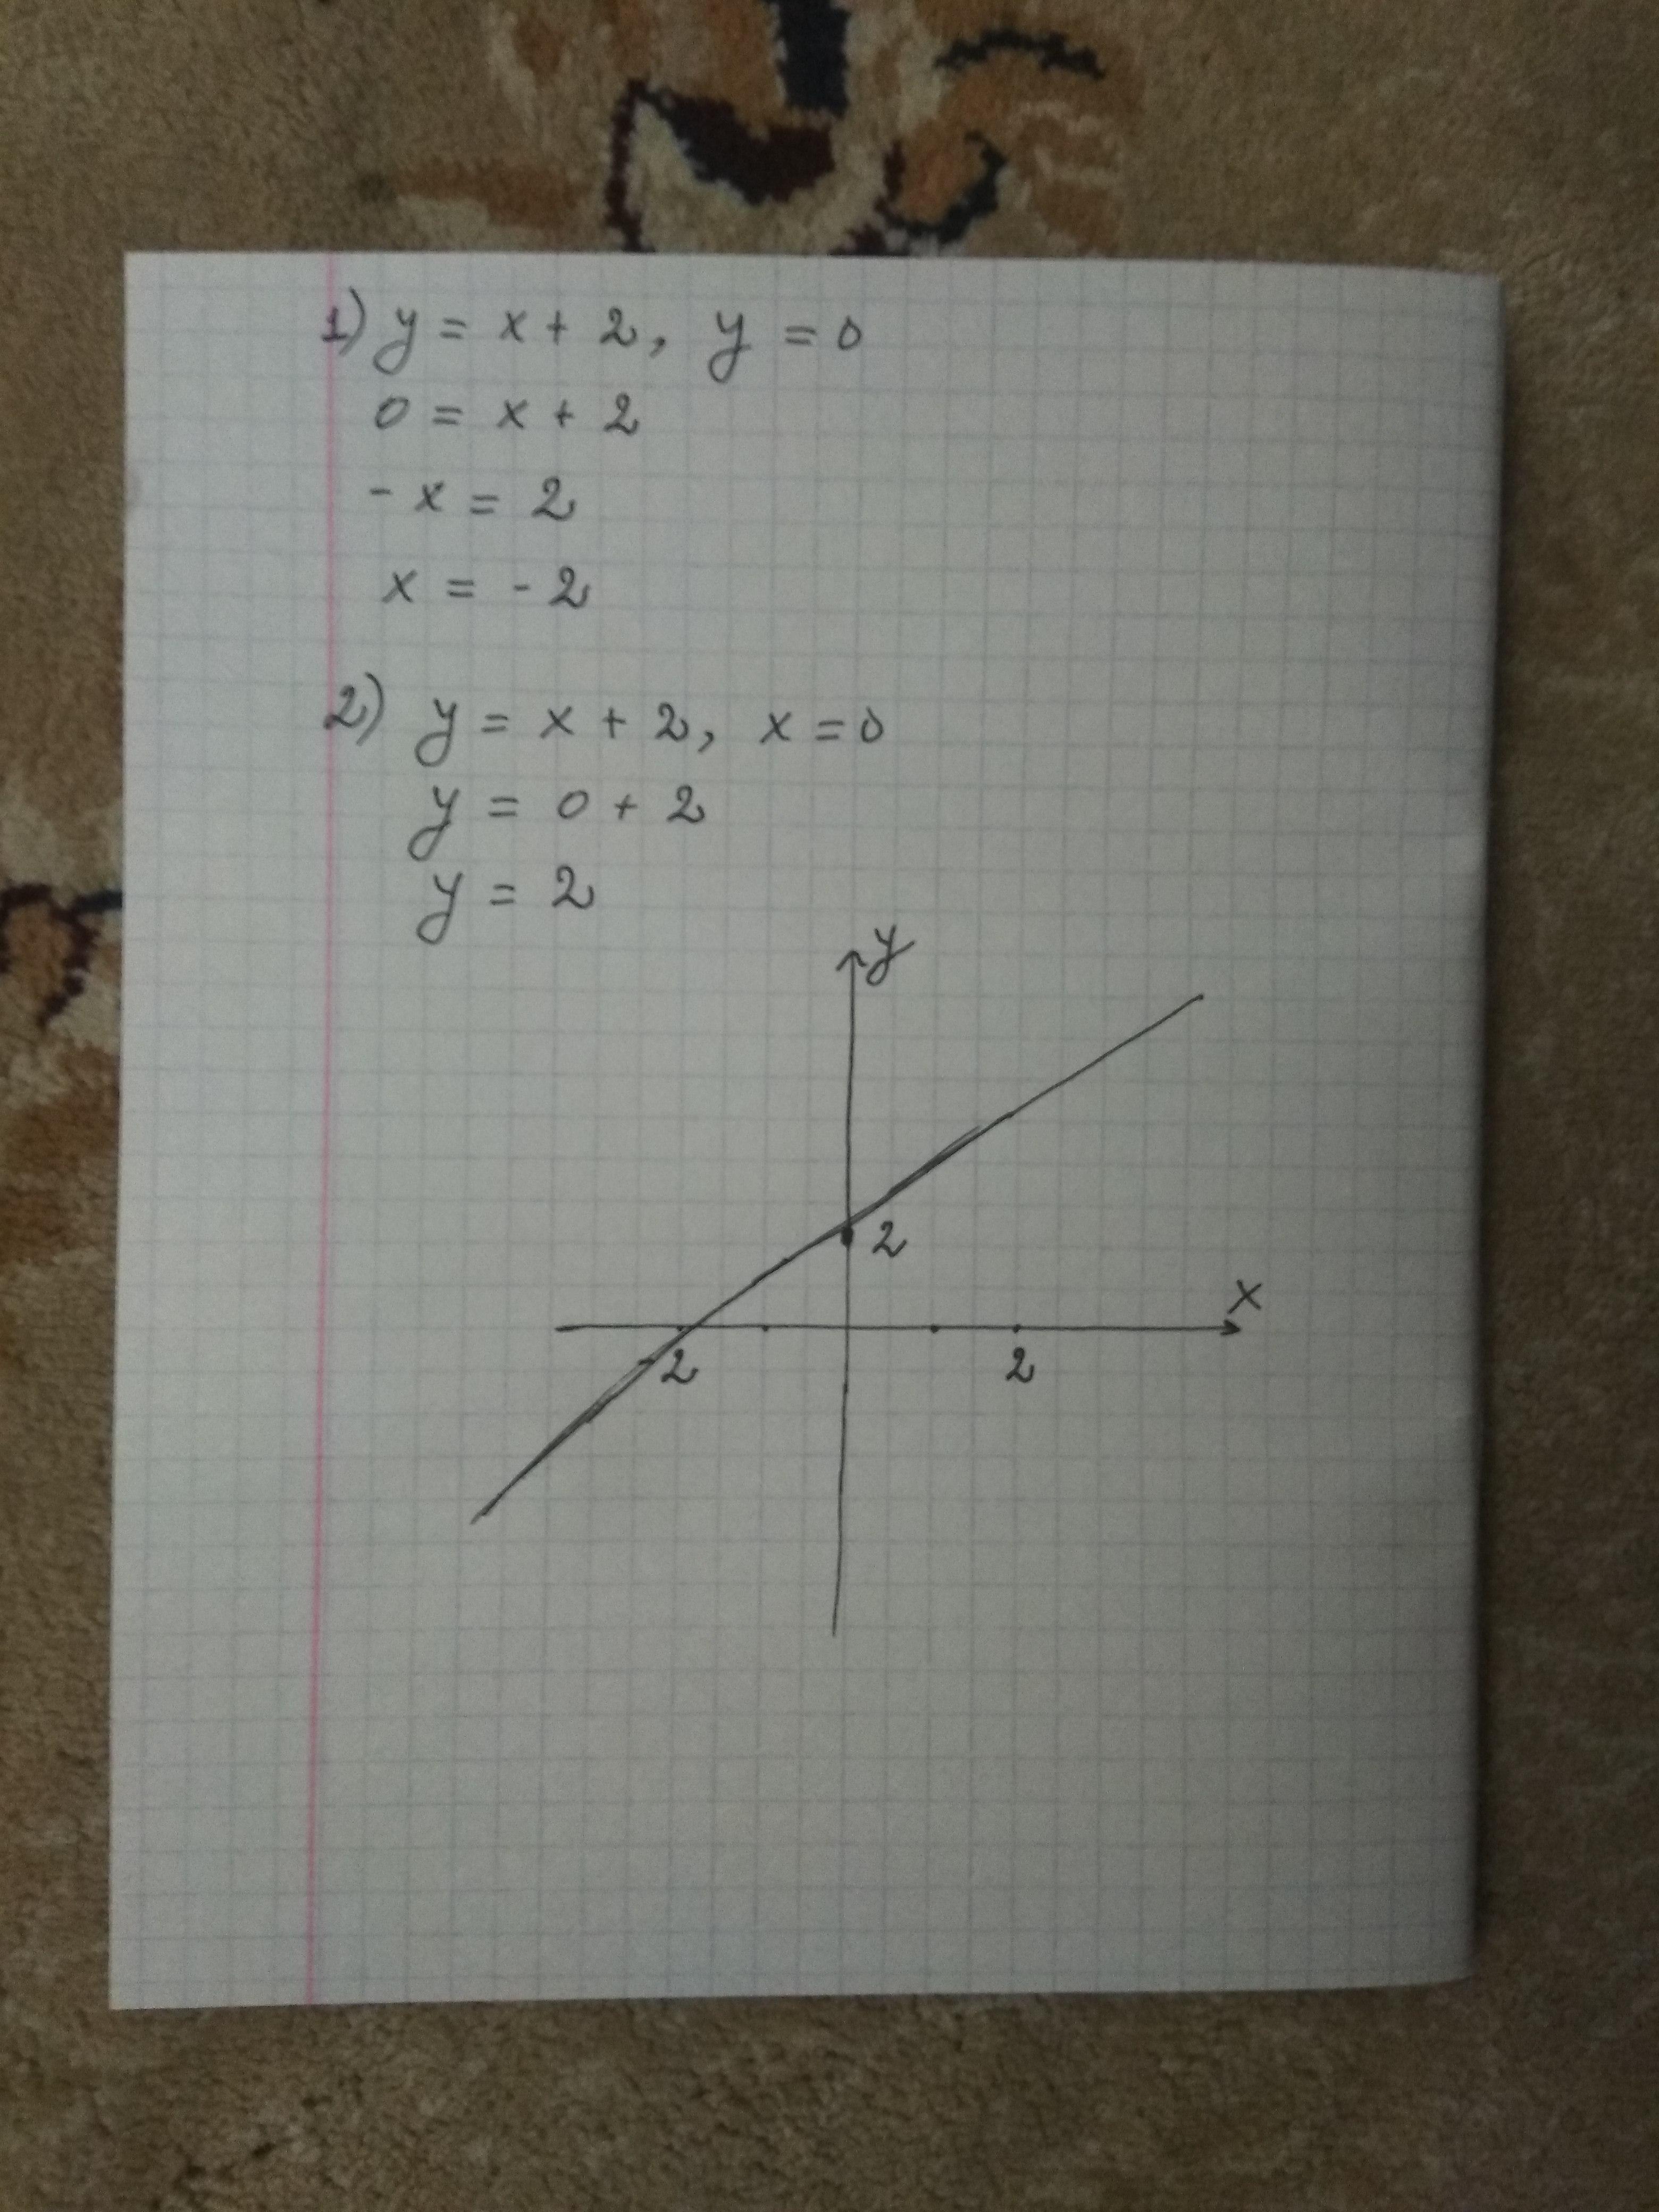 1) y = x + 2, y = 0
0 = x + 2
- x = 2
x = - 2
2) y = x + 2, x = 0
y = 0 + 2
y = 2
y
2
x
-2 2